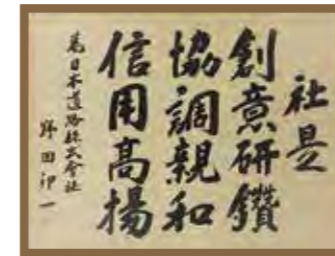 社是
創意研鑽
協調親和
信用高揚
為日本道路株式會社
野田卯一